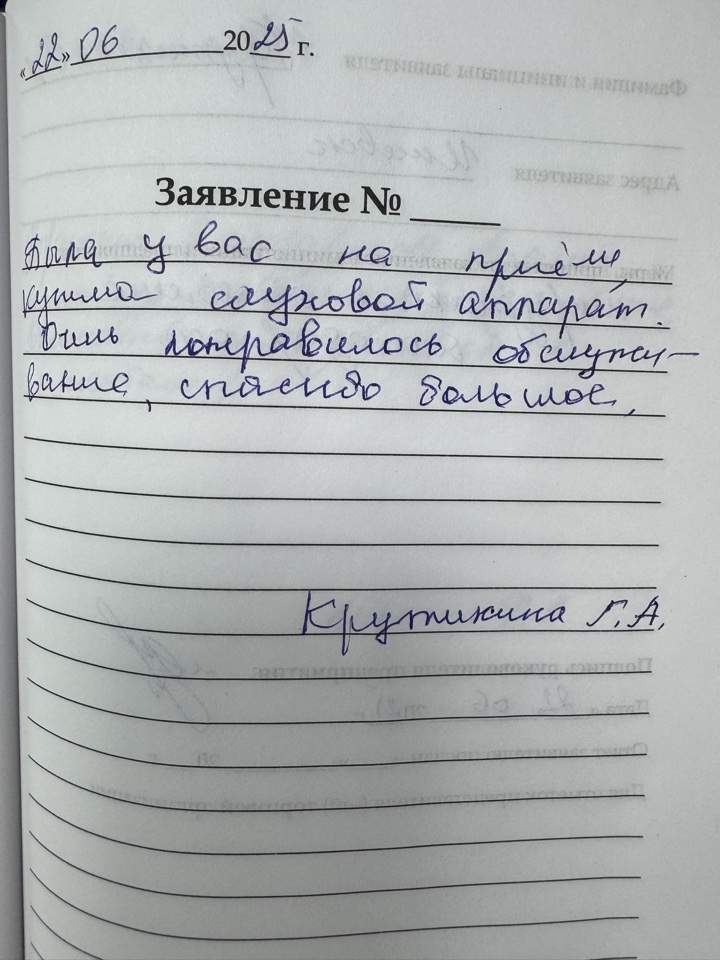 «22» 06 2025 г.
Заявление № ____
Была у вас на приём,
купила слуховой аппарат.
Очень понравилось обслужи-
вание, спасибо большое,
Г.А.